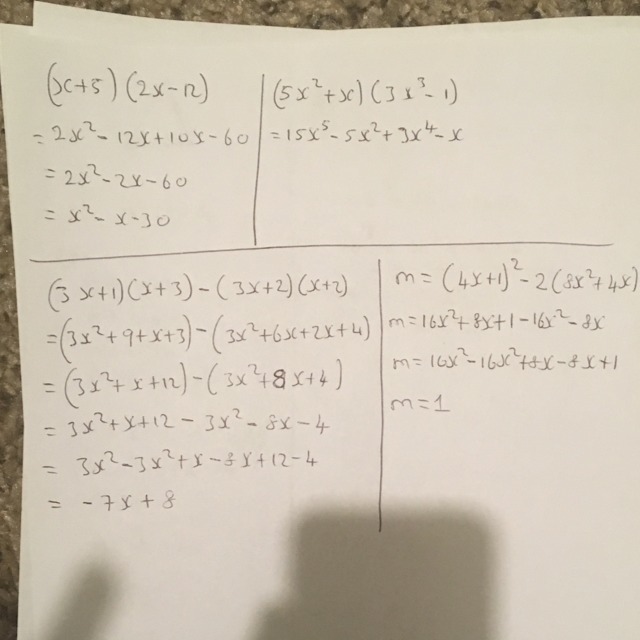 (x+5)(2x-12)
= 2x²-12x+10x-60
= 2x²-2x-60
= x²-x-30
(5x²+x)(3x³-1)
= 15x⁵-5x²+3x⁴-x
(3x+1)(x+3)-(3x+2)(x+2)
=(3x²+9+x+3)-(3x²+6x+2x+4)
= (3x²+x+12)-(3x²+8x+4)
= 3x²+x+12-3x²-8x-4
= 3x²-3x²+x-8x+12-4
= -7x+8
m= (4x+1)²-2(8x²+4x)
m=16x²+8x+1-16x²-8x
m= 16x²-16x²+8x-8x+1
m=1